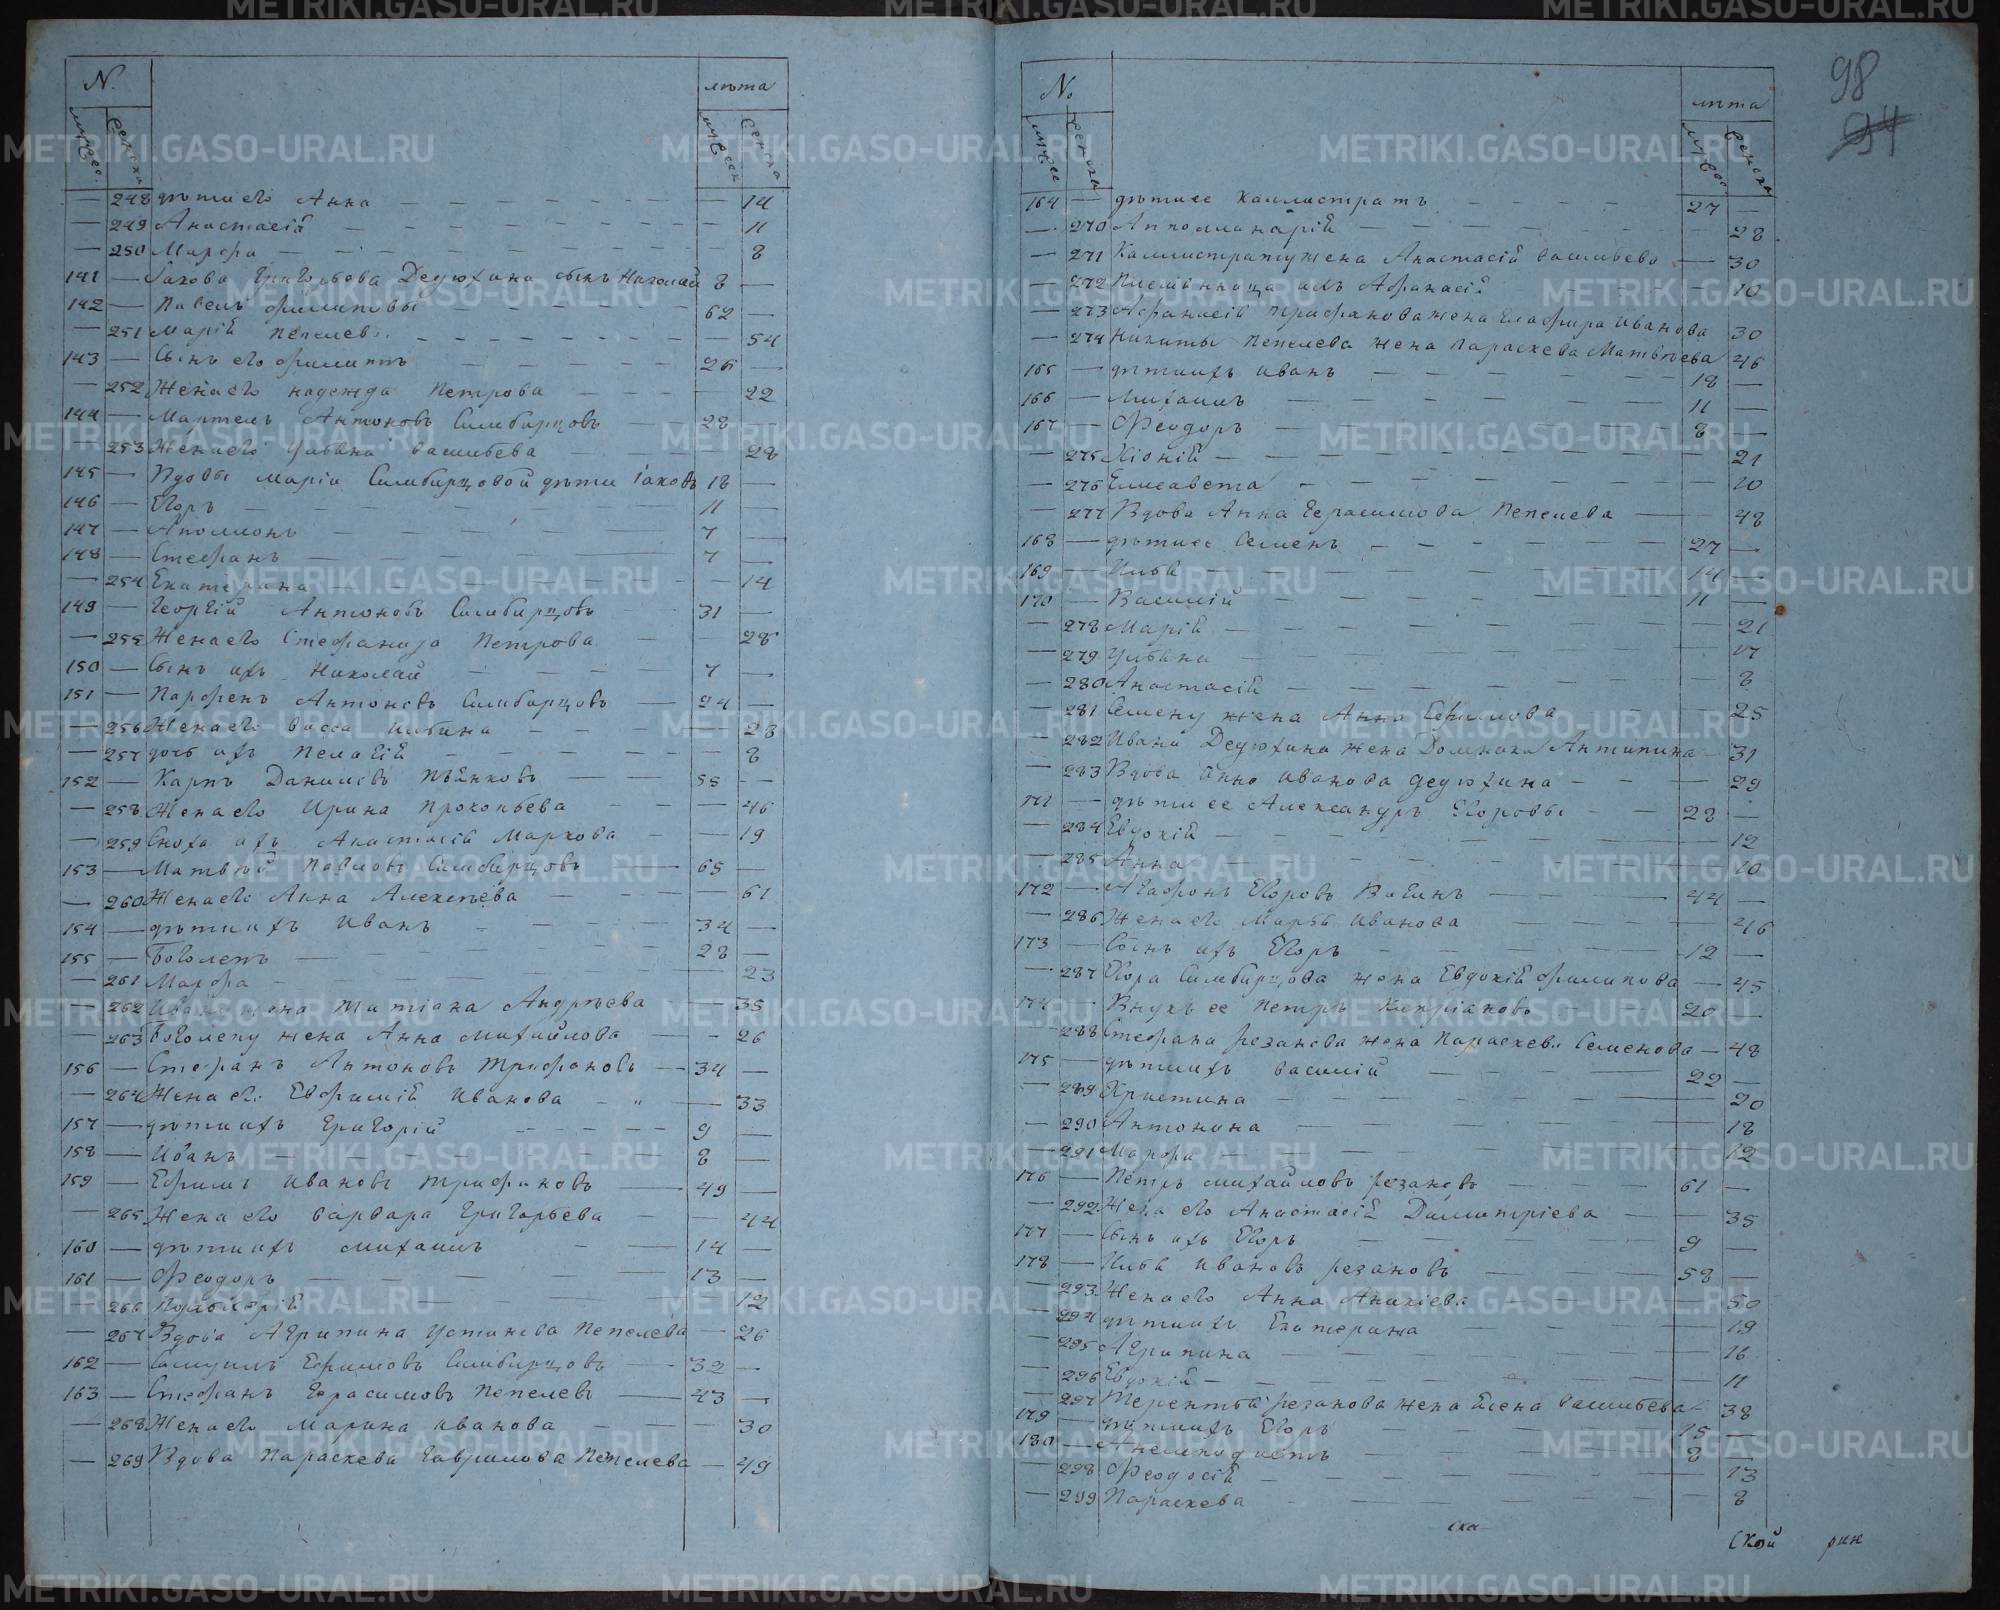 N. лѣта
мужес. женска мужеск женска
— 248 дѣти его Анна — 14
— 249 Анастасій — 11
— 250 Марфа — 8
141 — Іакова Григорьева Дедюхина сынъ Николай 8
142 — Павелъ Филиповъ — 62 —
— 251 Марій Пепелева — 54
143 — Сынъ его Филиппъ — 26 —
— 252 Жена его Надежда Петрова — 22
144 — Мартелъ Антоновъ Симбирцовъ — 28
— 253 Жена его Ульяна Васильева — 28
145 — Вдовы Маріи Симбирцовой дѣти Іаковъ 18 —
146 — Егоръ — 11 —
147 — Аполлонъ — 7 —
148 — Стефанъ — 7 —
— 254 Екатерина — 14
149 — Георгій Антоновъ Симбирцовъ — 31 —
— 255 Жена его Стефанида Петрова — 28
150 — Сынъ ихъ Николай — 7 —
151 — Парфенъ Антоновъ Симбирцовъ — 24 —
— 256 Жена его Васса Ильина — 28
— 257 дочь ихъ Пелагій — 8
152 — Карпъ Даниловъ Пѣнковъ — 55 —
— 258 Жена его Ирина Прокопьева — 46
— 259 Сноха ихъ Анастасій Маркова — 19
153 — Матвѣй Павловъ Симбирцовъ — 65 —
— 260 Жена его Анна Алексѣева — 61
154 — дѣти ихъ Иванъ — 34 —
155 — Боголепъ — 28 —
— 261 Марфа — 23
— 262 Ивану жена Татіана Андрѣева — 35
— 263 Боголепу жена Анна Михайлова — 26
156 — Стефанъ Антоновъ Трифоновъ — 34 —
— 264 Жена его Евфимій Иванова — 33
157 — дѣти ихъ Григорій — 9 —
158 — Иванъ — 8 —
159 — Ефимъ Ивановъ Трифоновъ — 49 —
— 265 Жена его Варвара Григорьева — 44
160 — дѣти ихъ Михаилъ — 14 —
161 — Феодоръ — 13 —
— 266 — 12
— 267 Вдова Агрипина Устинова Пепелева — 26
162 — Самуилъ Ефимовъ Симбирцовъ — 32 —
163 — Стефанъ Герасимовъ Пепелевъ — 43 —
— 268 Жена его Марина Иванова — 30
— 269 Вдова Параскева Гаврилова Пепелева — 49
98
94
N. лѣта
мужес женска мужес женска
164 — дѣти ее Каллистратъ — 27 —
— 270 Апполинарій — 28
— 271 Каллистрату жена Анастасій Васильева — 30
— 272 Племянница ихъ Афанасій — 10
— 273 Афанасій Трифанова жена Глафира Иванова 30
— 274 Никиты Пепелева жена Параскева Матвѣева 46
165 — дѣти ихъ Иванъ — 18 —
166 — Михаилъ — 11 —
167 — Феодоръ — 8 —
— 275 Хіоній — 21
— 276 Елисавета — 10
— 277 Вдова Анна Герасимова Пепелева — 48
168 — дѣти ее Семенъ — 27 —
169 — Илья — 14 —
170 — Василій — 11 —
— 278 Марій — 21
— 279 Ульяна — 17
— 280 Анастасій — 8
— 281 Семену жена Анна Ефимова — 25
— 282 Ивана Дедюхина жена Домника Антипина — 31
— 283 Вдова Анна Иванова Дедюхина — 29
171 — дѣти ее Александръ Егоровы — 28 —
— 284 Евдокій — 12
— 285 Анна — 10
172 — Агафонъ Егоровъ Вагинъ — 44 —
— 286 Жена его Марья Иванова — 46
173 — Сынъ ихъ Егоръ — 12 —
— 287 Егора Симбирцова жена Евдокій Филипова — 45
174 — Внукъ ее Петръ Кипріановъ — 20 —
— 288 Стефана Резанова жена Параскева Семенова — 48
175 — дѣти ихъ Василій — 22 —
— 289 Христина — 20
— 290 Антонина — 18
— 291 Марфа — 12
176 — Петръ Михайловъ Резановъ — 61 —
— 292 Жена его Анастасій Димитріева — 35
177 — Сынъ ихъ Егоръ — 9 —
178 — Илья Ивановъ Резановъ — 58 —
— 293 Жена его Анна Аникіева — 50
— 294 дѣти ихъ Екатерина — 19
— 295 Агрипина — 16
— 296 Евдокій — 11
— 297 Терентья Резанова жена Елена Васильева — 38
179 — дѣти ихъ Егоръ — 15 —
180 — Анемподистъ — 8 —
— 298 Феодосій — 13
— 299 Параскева — 8
ска
ской